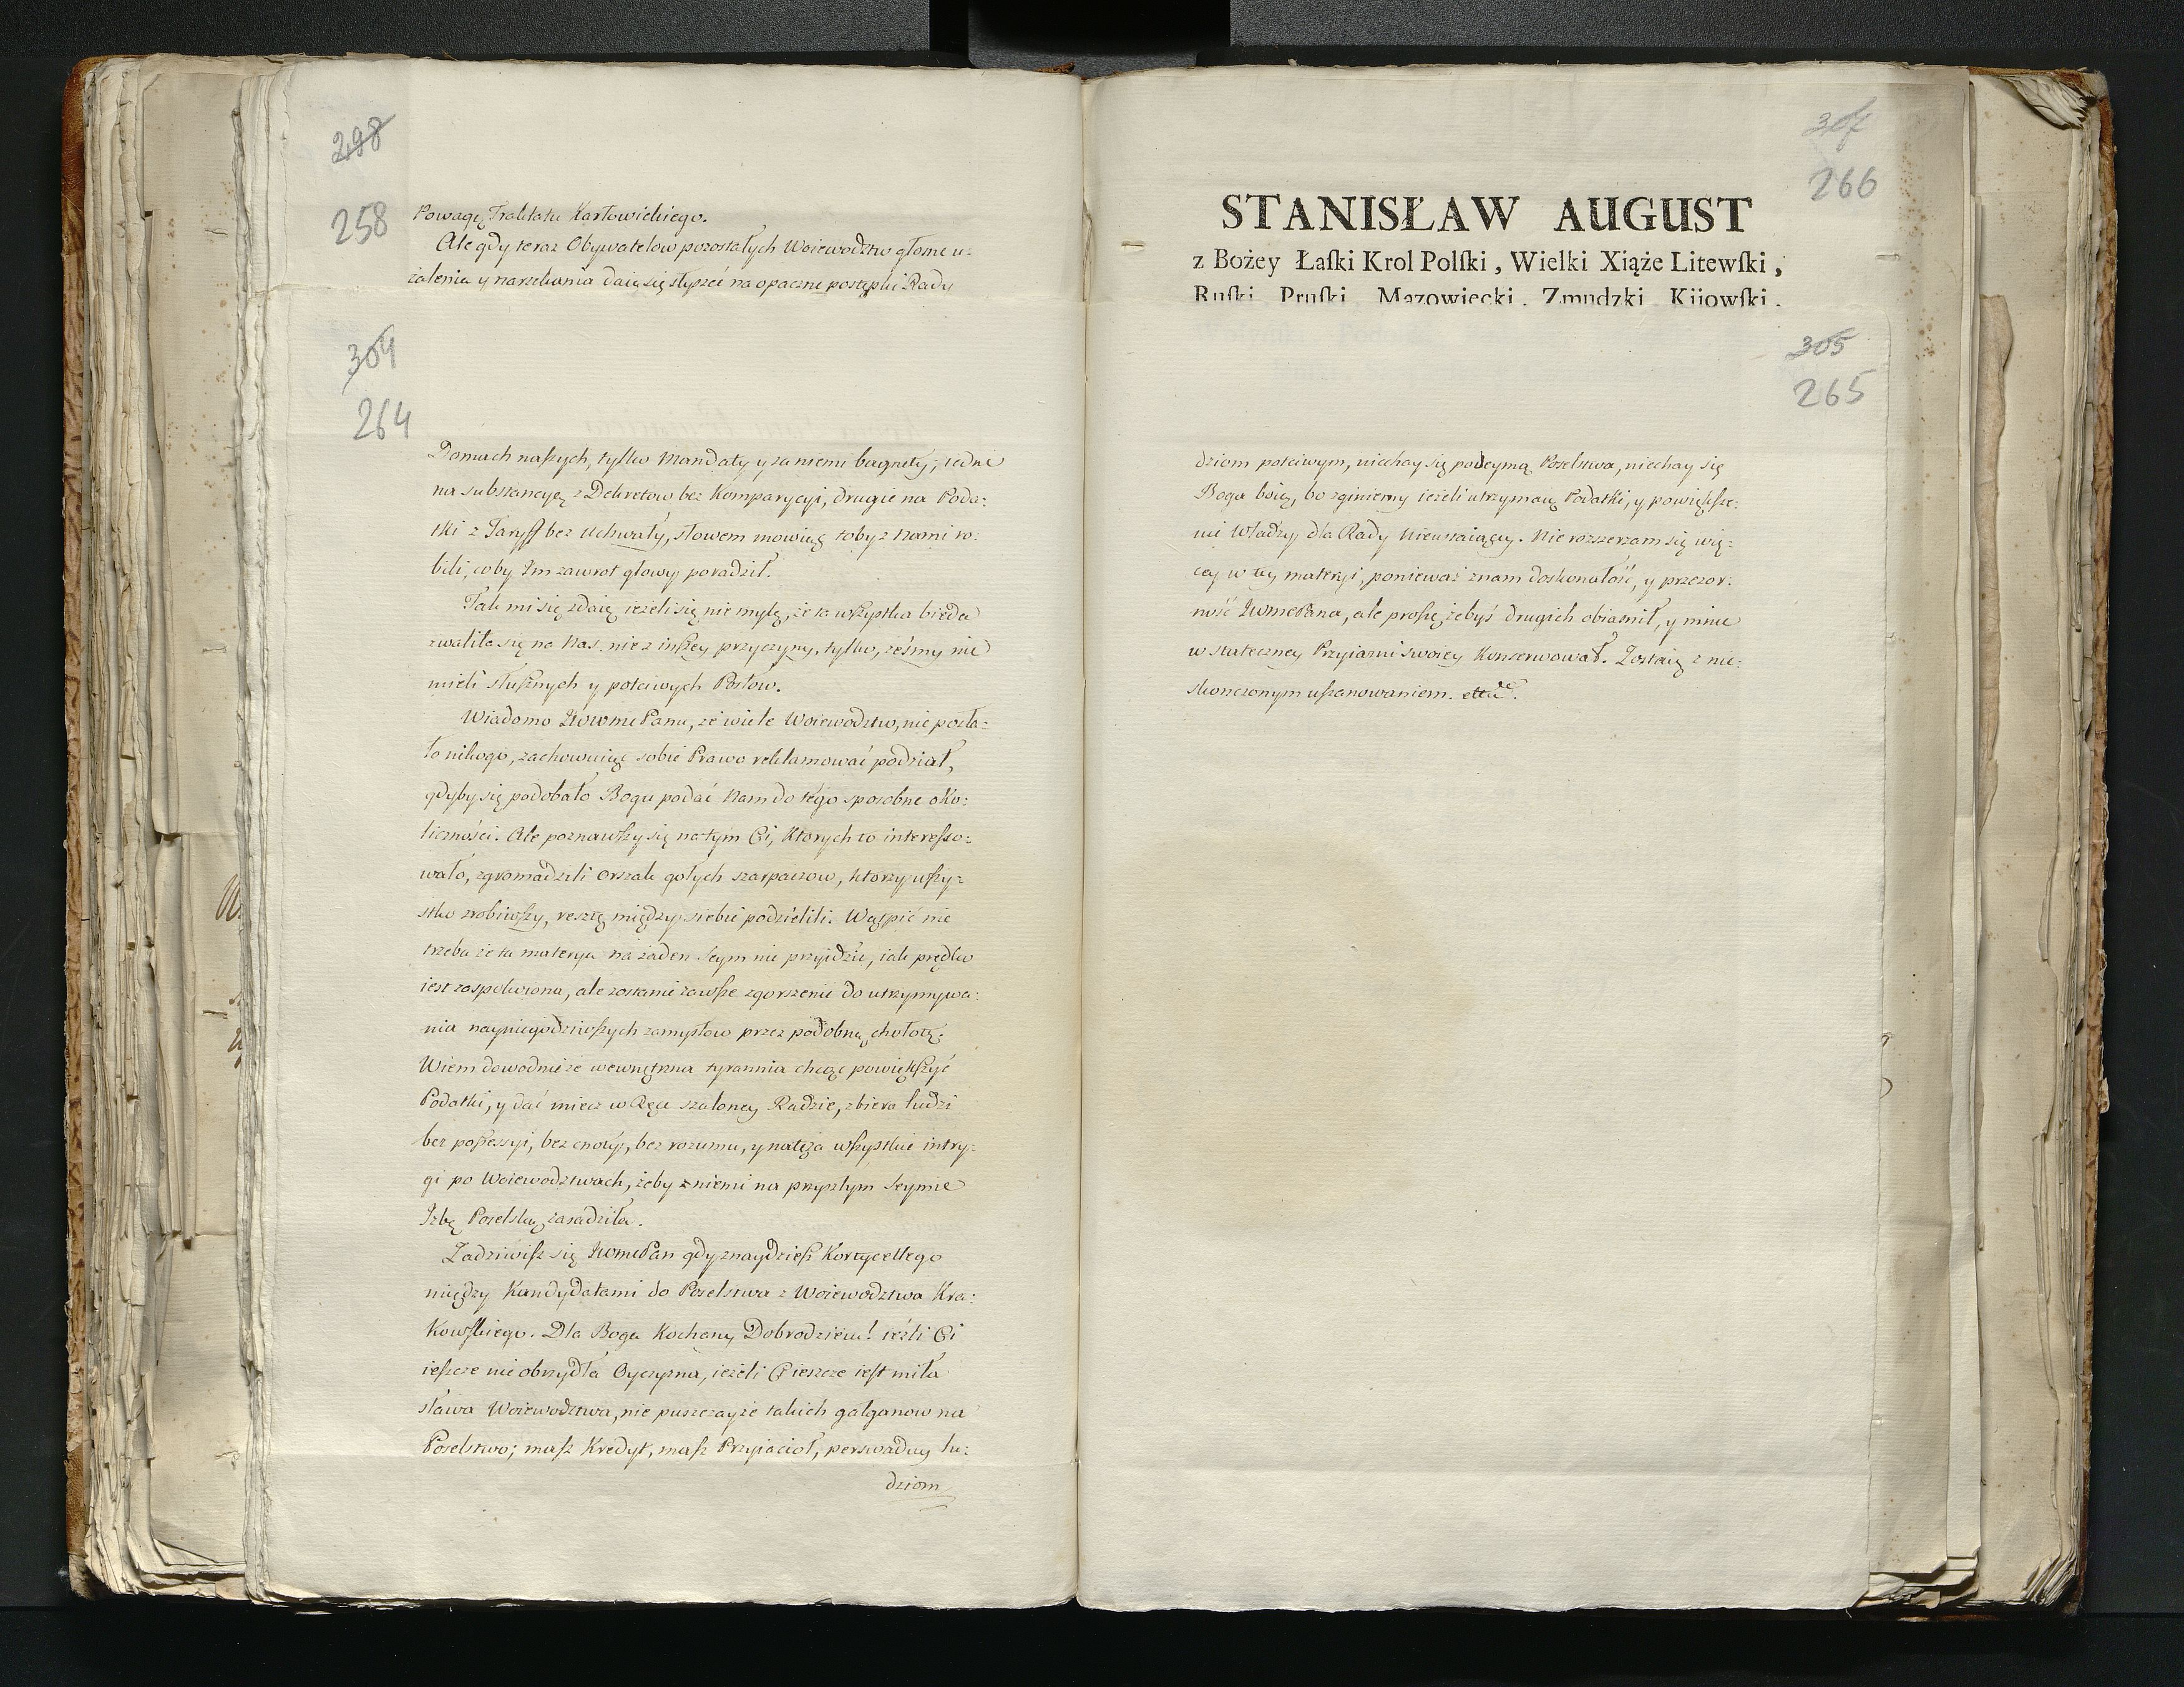 298
258
Powagę Traktatu Karłowickiego.
Ale gdy teraz Obywatelow pozostałych Woiewodztw głosne u-
żalenia y narzekania daią się słyszeć na opaczne postępki Rady
304
264
Domach naszych, tylko Mandaty y za niemi bagnety, iedne
na substancyę z Dekretow bez Komparycyi, drugie na Poda:
tki z Taryff bez Uchwały, słowem mowiąc toby z Nami ro:
bili, coby Im zawrot głowy poradził.
Tak mi się zdaię ieżeli się nie mylę, że ta wszystka bieda
zwaliła się na Nas nie z inszey przyczyny, tylko, żeśmy nie
mieli słusznych y poćciwych Posłow.
Wiadomo JWWmePanu, że wiele Woiewodztw, nie posła:
ło nikogo, zachowuiąc sobie Prawo reklamować podział,
gdyby się podobało Bogu podać Nam do tego sposobne oko:
liczności. Ale poznawszy się na tym Ci, Ktorych to interesso:
wało, zgromadzili orszak gołych szarpaczow, ktorzy wszy:
stko zrobiwszy, resztę między siebie podzielili. Wątpić nie
trzeba że ta materya na żaden Seym nie przyidzie, iak prędko
iest zaspokoiona, ale zostanie zawsze zgorszenie do utrzymywa:
nia nayniegodziwszych zamysłow przez podobną chołotę.
Wiem dowodnie że wewnętrzna tyrannia chcąc powiększyć
Podatki, y dać miecz w Ręce szaloney Radzie, zbiera ludzi
bez possessyi, bez cnoty, bez rozumu, y natęża wszystkie intry:
gi po Woiewodztwach, żeby z niemi na przyszłym Seymie
Izbę Poselską zasadziła.
Zadziwisz się JWmePan gdy znaydziesz Kortycellego
między Kandydatami do Poselstwa z Woiewodztwa Kra:
kowskiego. Dla Boga Kochany Dobrodzieiu! ieźli Ci
ieszcze nie obrzydła Oyczyzna, ieżeli Ci ieszcze iest miła
sława Woiewodztwa, nie puszczayże takich gałganow na
Poselstwo; masz Kredyt, masz Przyiacioł, perswaduy lu:
dziom
307
266
STANISŁAW AUGUST
z Bożey Łaſki Krol Polſki, Wielki Xiąże Litewſki,
Ruſki Pruſki Mazowiecki, Zmudzki Kiiowſki,
305
265
dziom poćciwym, niechay się podeymą Poselstwa, niechay się
Boga boią, bo zginiemy ieżeli utrzymaią Podatki, y powiększe:
nie Władzy dla Rady Nieustaiącey. Nie rozszerzam się wię:
cey w tey materyi, ponieważ znam doskonałość, y przezor:
ność JWmePana, ale proszę, żebyś drugich obiaśnił, y mnie
w stateczney Przyiaźni swoiey Konserwował. Zostaię z nie:
skonczonym uszanowaniem.